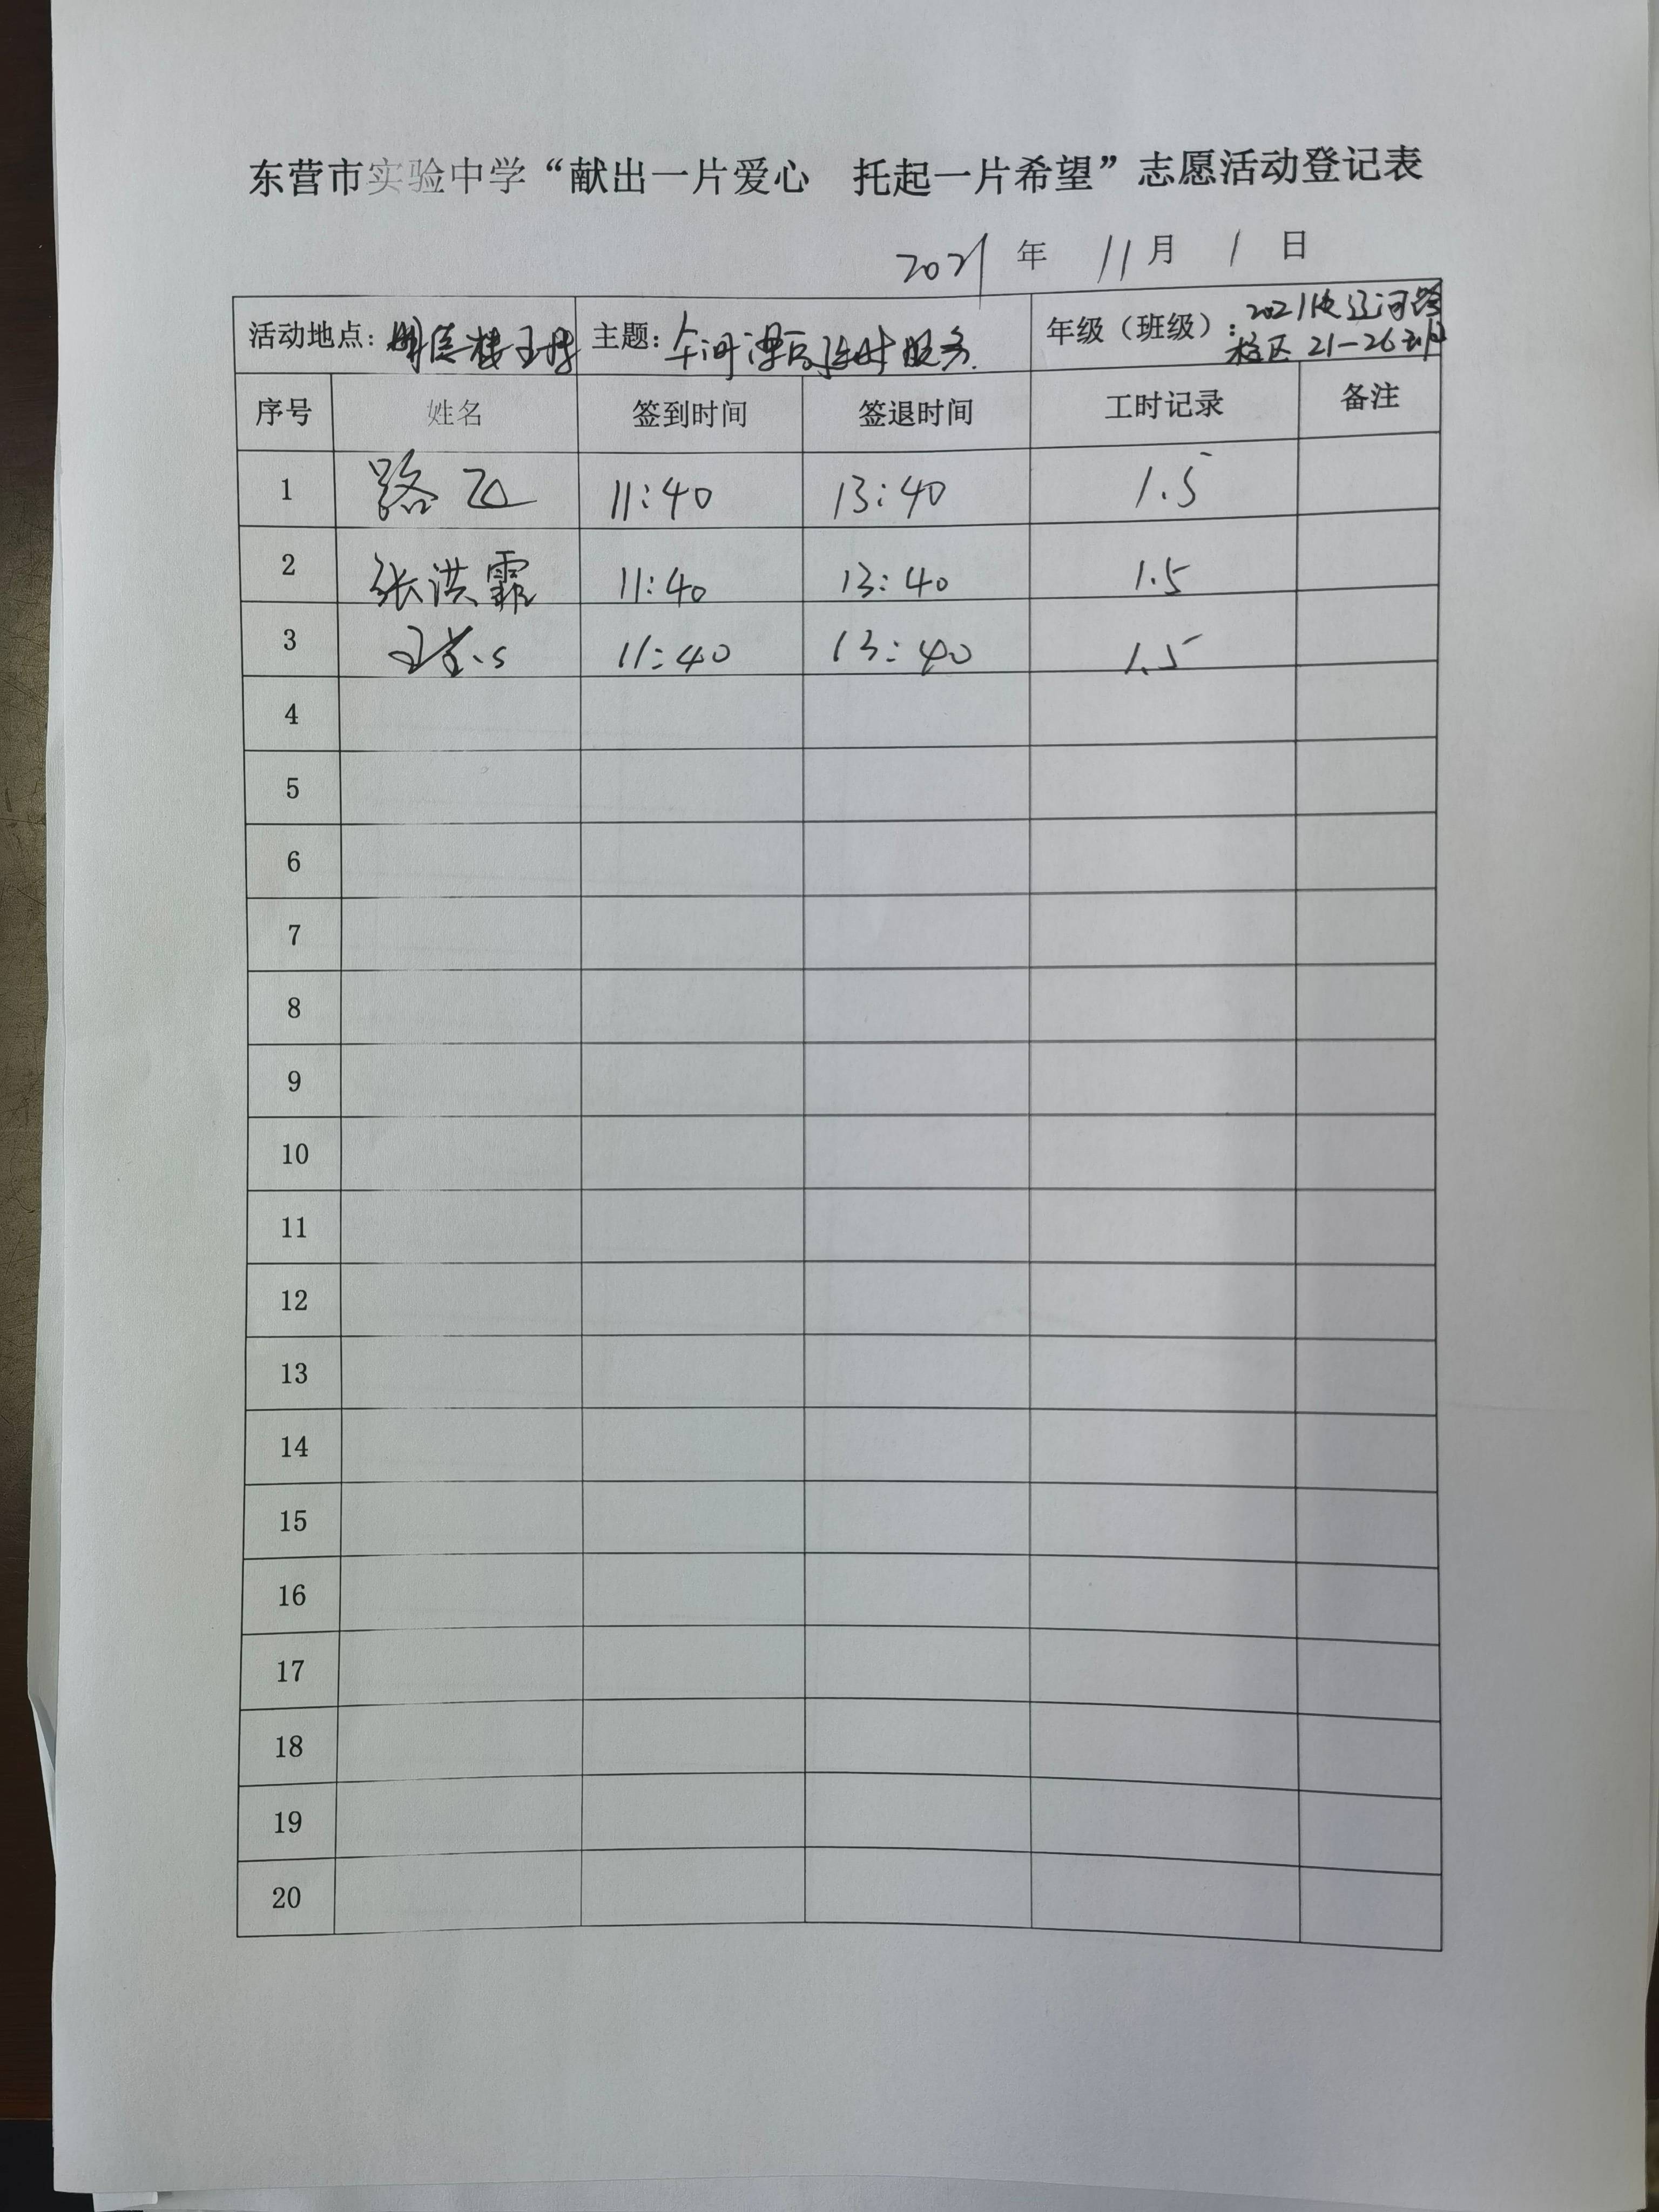 东营市实验中学“献出一片爱心 托起一片希望”志愿活动登记表
2021 年 11 月 1 日
活动地点： 主题：午间课后延时服务 年级（班级）：2021级辽河路
校区 21-26班
序号 姓名 签到时间 签退时间 工时记录 备注
1 路飞 11:40 13:40 1.5
2 张洪霏 11:40 13:40 1.5
3 11:40 13:40 1.5
4
5
6
7
8
9
10
11
12
13
14
15
16
17
18
19
20